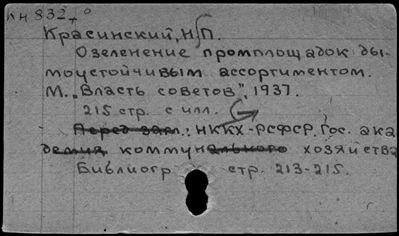 КН 832
Красинский, Н.П.
Озеленение промплощадок ды-
моустойчивым ассортиментом.
М. „Власть советов", 1937.
215 стр. с илл.
Перед загл.: НККХ-РСФСР. Гос. ака
демия коммунального хозяйства
Библиогр стр. 213-215.